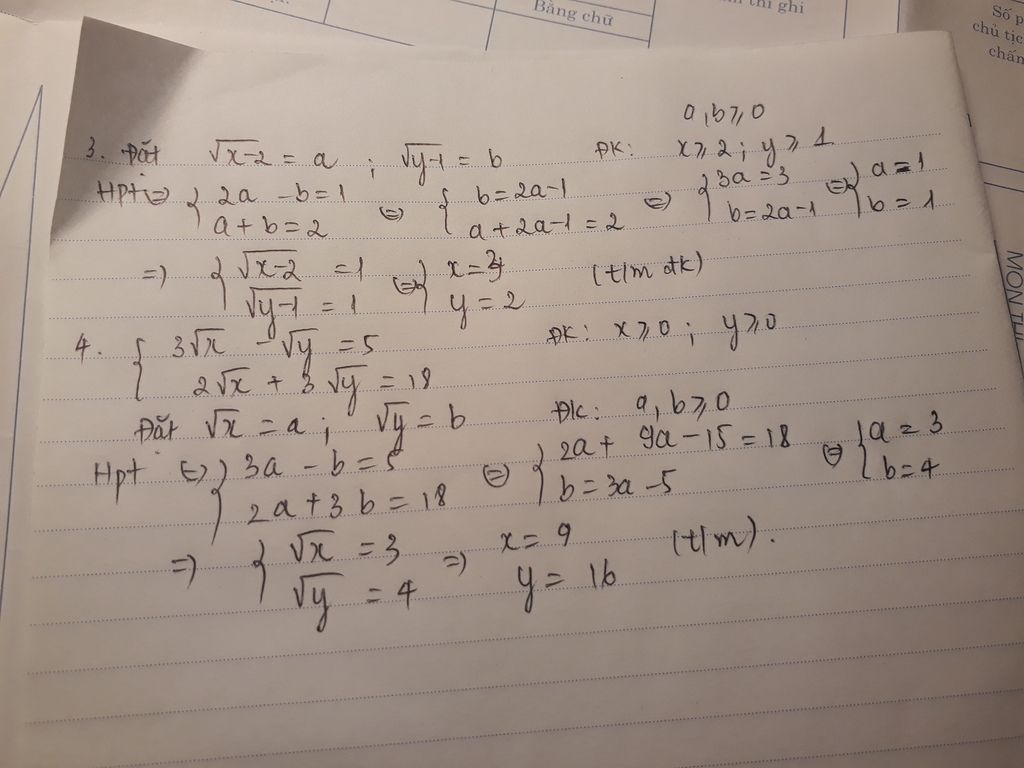 Bằng chữ
thi ghi
Số p
chủ tịc
chấm
a, b ≥ 0
3. Đặt √x-2 = a ; √y-1 = b ĐK: x ≥ 2 ; y ≥ 1
Hpt ⇔ { 2a - b = 1 ; a + b = 2 ⇔ { b = 2a-1 ; a + 2a-1 = 2 ⇔ { 3a = 3 ; b = 2a-1 ⇔ { a = 1 ; b = 1
⇒ { √x-2 = 1 ; √y-1 = 1 ⇔ { x = 3 ; y = 2 (t/m đk)
4. { 3√x - √y = 5 ĐK: x ≥ 0 ; y ≥ 0
2√x + 3√y = 18
Đặt √x = a ; √y = b ĐK: a, b ≥ 0
Hpt ⇔ { 3a - b = 5 ; 2a + 3b = 18 ⇔ { 2a + 9a - 15 = 18 ; b = 3a - 5 ⇔ { a = 3 ; b = 4
⇒ { √x = 3 ; √y = 4 ⇒ x = 9 ; y = 16 (t/m).